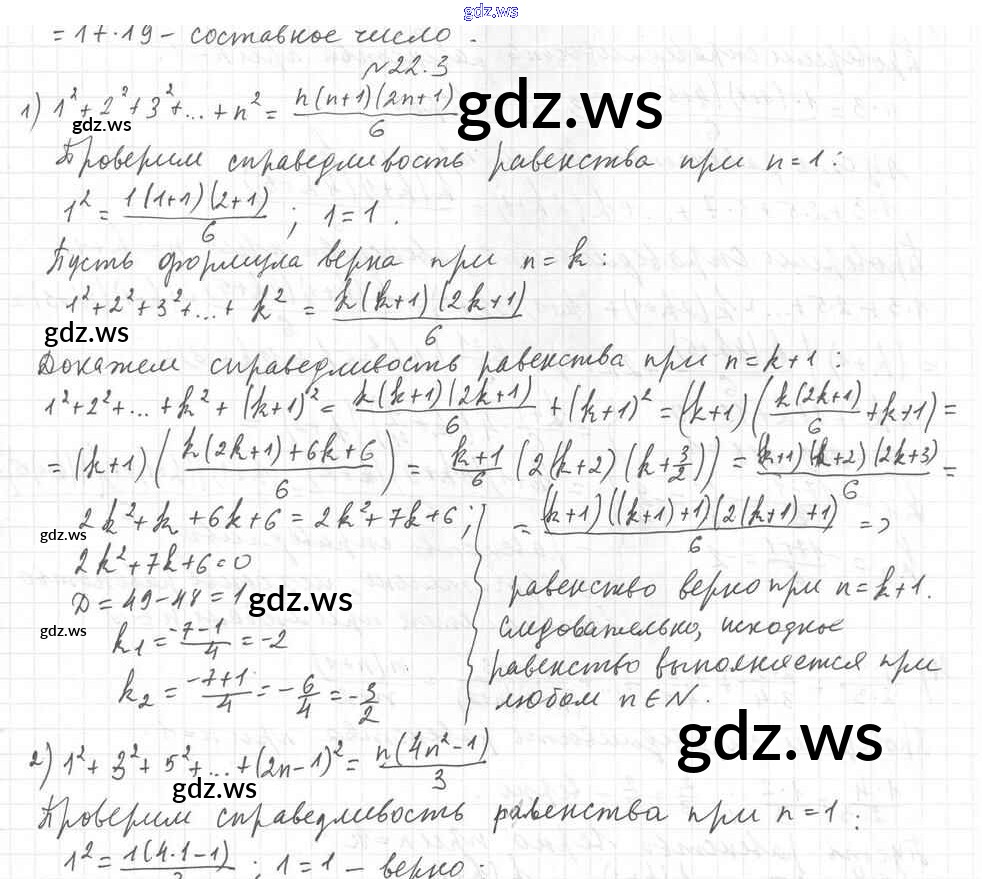 gdz.ws
= 17·19 – составное число.
№22.3
1) 1² + 2² + 3² + ... + n² = n(n+1)(2n+1)/6
gdz.ws
gdz.ws
Проверим справедливость равенства при n=1:
1² = 1(1+1)(2+1)/6 ; 1=1.
Пусть формула верна при n=k:
1²+2²+3²+...+ k² = k(k+1)(2k+1)/6
gdz.ws
Докажем справедливость равенства при n=k+1:
1²+2²+...+k²+(k+1)² = k(k+1)(2k+1)/6 +(k+1)² = (k+1)(k(2k+1)/6 + k+1) =
= (k+1)(k(2k+1)+6k+6/6) = k+1/6 (2(k+2)(k+3/2)) = (k+1)(k+2)(2k+3)/6 =
2k²+k+6k+6 = 2k²+7k+6;
gdz.ws
2k²+7k+6=0
D = 49-48 = 1
gdz.ws
gdz.ws
k₁ = -7-1/4 = -2
k₂ = -7+1/4 = -6/4 = -3/2
= (k+1)((k+1)+1)(2(k+1)+1)/6 =>
равенство верно при n=k+1.
Следовательно, исходное
равенство выполняется при
любом n∈N.
gdz.ws
2) 1²+3²+5²+...+(2n-1)² = n(4n²-1)/3
gdz.ws
Проверим справедливость равенства при n=1:
1² = 1(4·1-1)/3 ; 1=1 – верно;